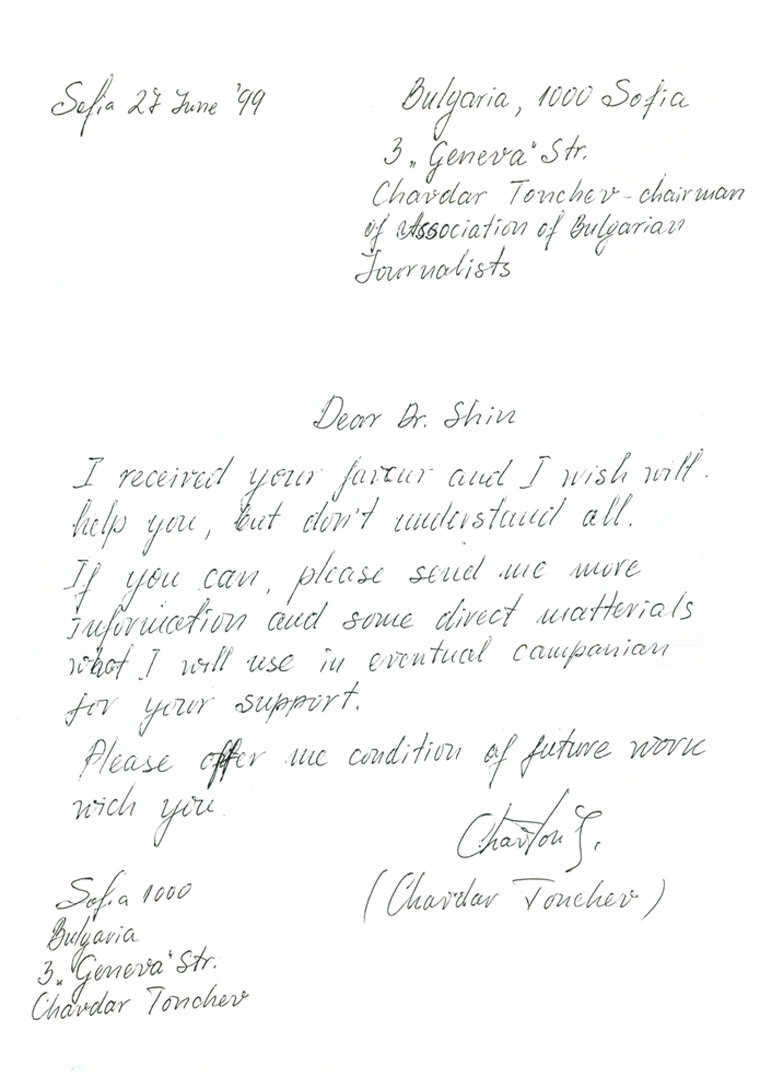 Sofia 27 June '99
Bulgaria, 1000 Sofia
3 „Geneva“ Str.
Chavdar Tonchev - chairman
of Association of Bulgarian
Journalists
Dear Dr. Shin
I received your favour and I wish will
help you, but don't understand all.
If you can, please send me more
information and some direct matterials
what I will use in eventual campanian
for your support.
Please offer me condition of future work
wich you.
(Chavdar Tonchev)
Sofia 1000
Bulgaria
3 „Geneva“ Str.
Chavdar Tonchev